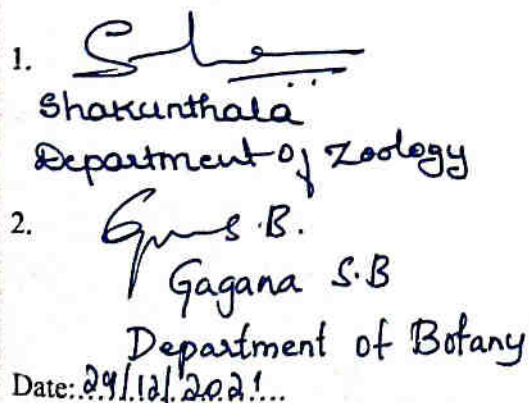 1.
Shakunthala
Department of Zoology
2. S.B.
Gagana S.B
Department of Botany
Date: 29/12/2021